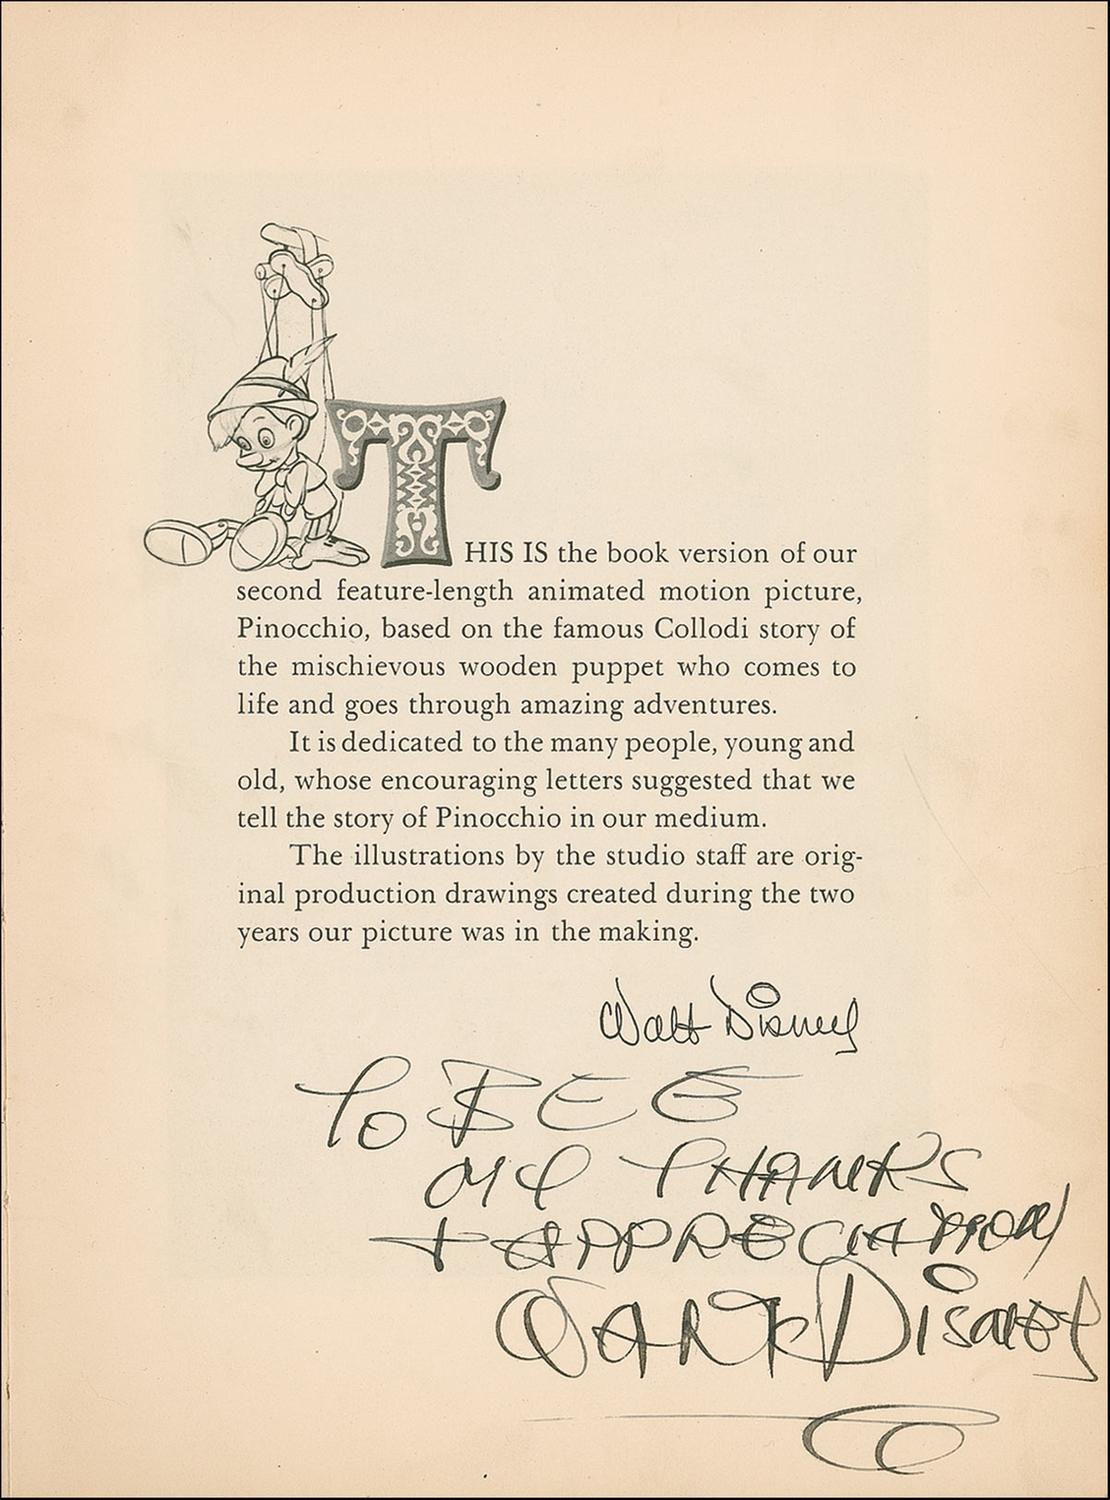 THIS IS the book version of our
second feature-length animated motion picture,
Pinocchio, based on the famous Collodi story of
the mischievous wooden puppet who comes to
life and goes through amazing adventures.
It is dedicated to the many people, young and
old, whose encouraging letters suggested that we
tell the story of Pinocchio in our medium.
The illustrations by the studio staff are orig-
inal production drawings created during the two
years our picture was in the making.
Walt Disney
To BEE
My THANKS
+ APPRECIATION
WALT DISNEY